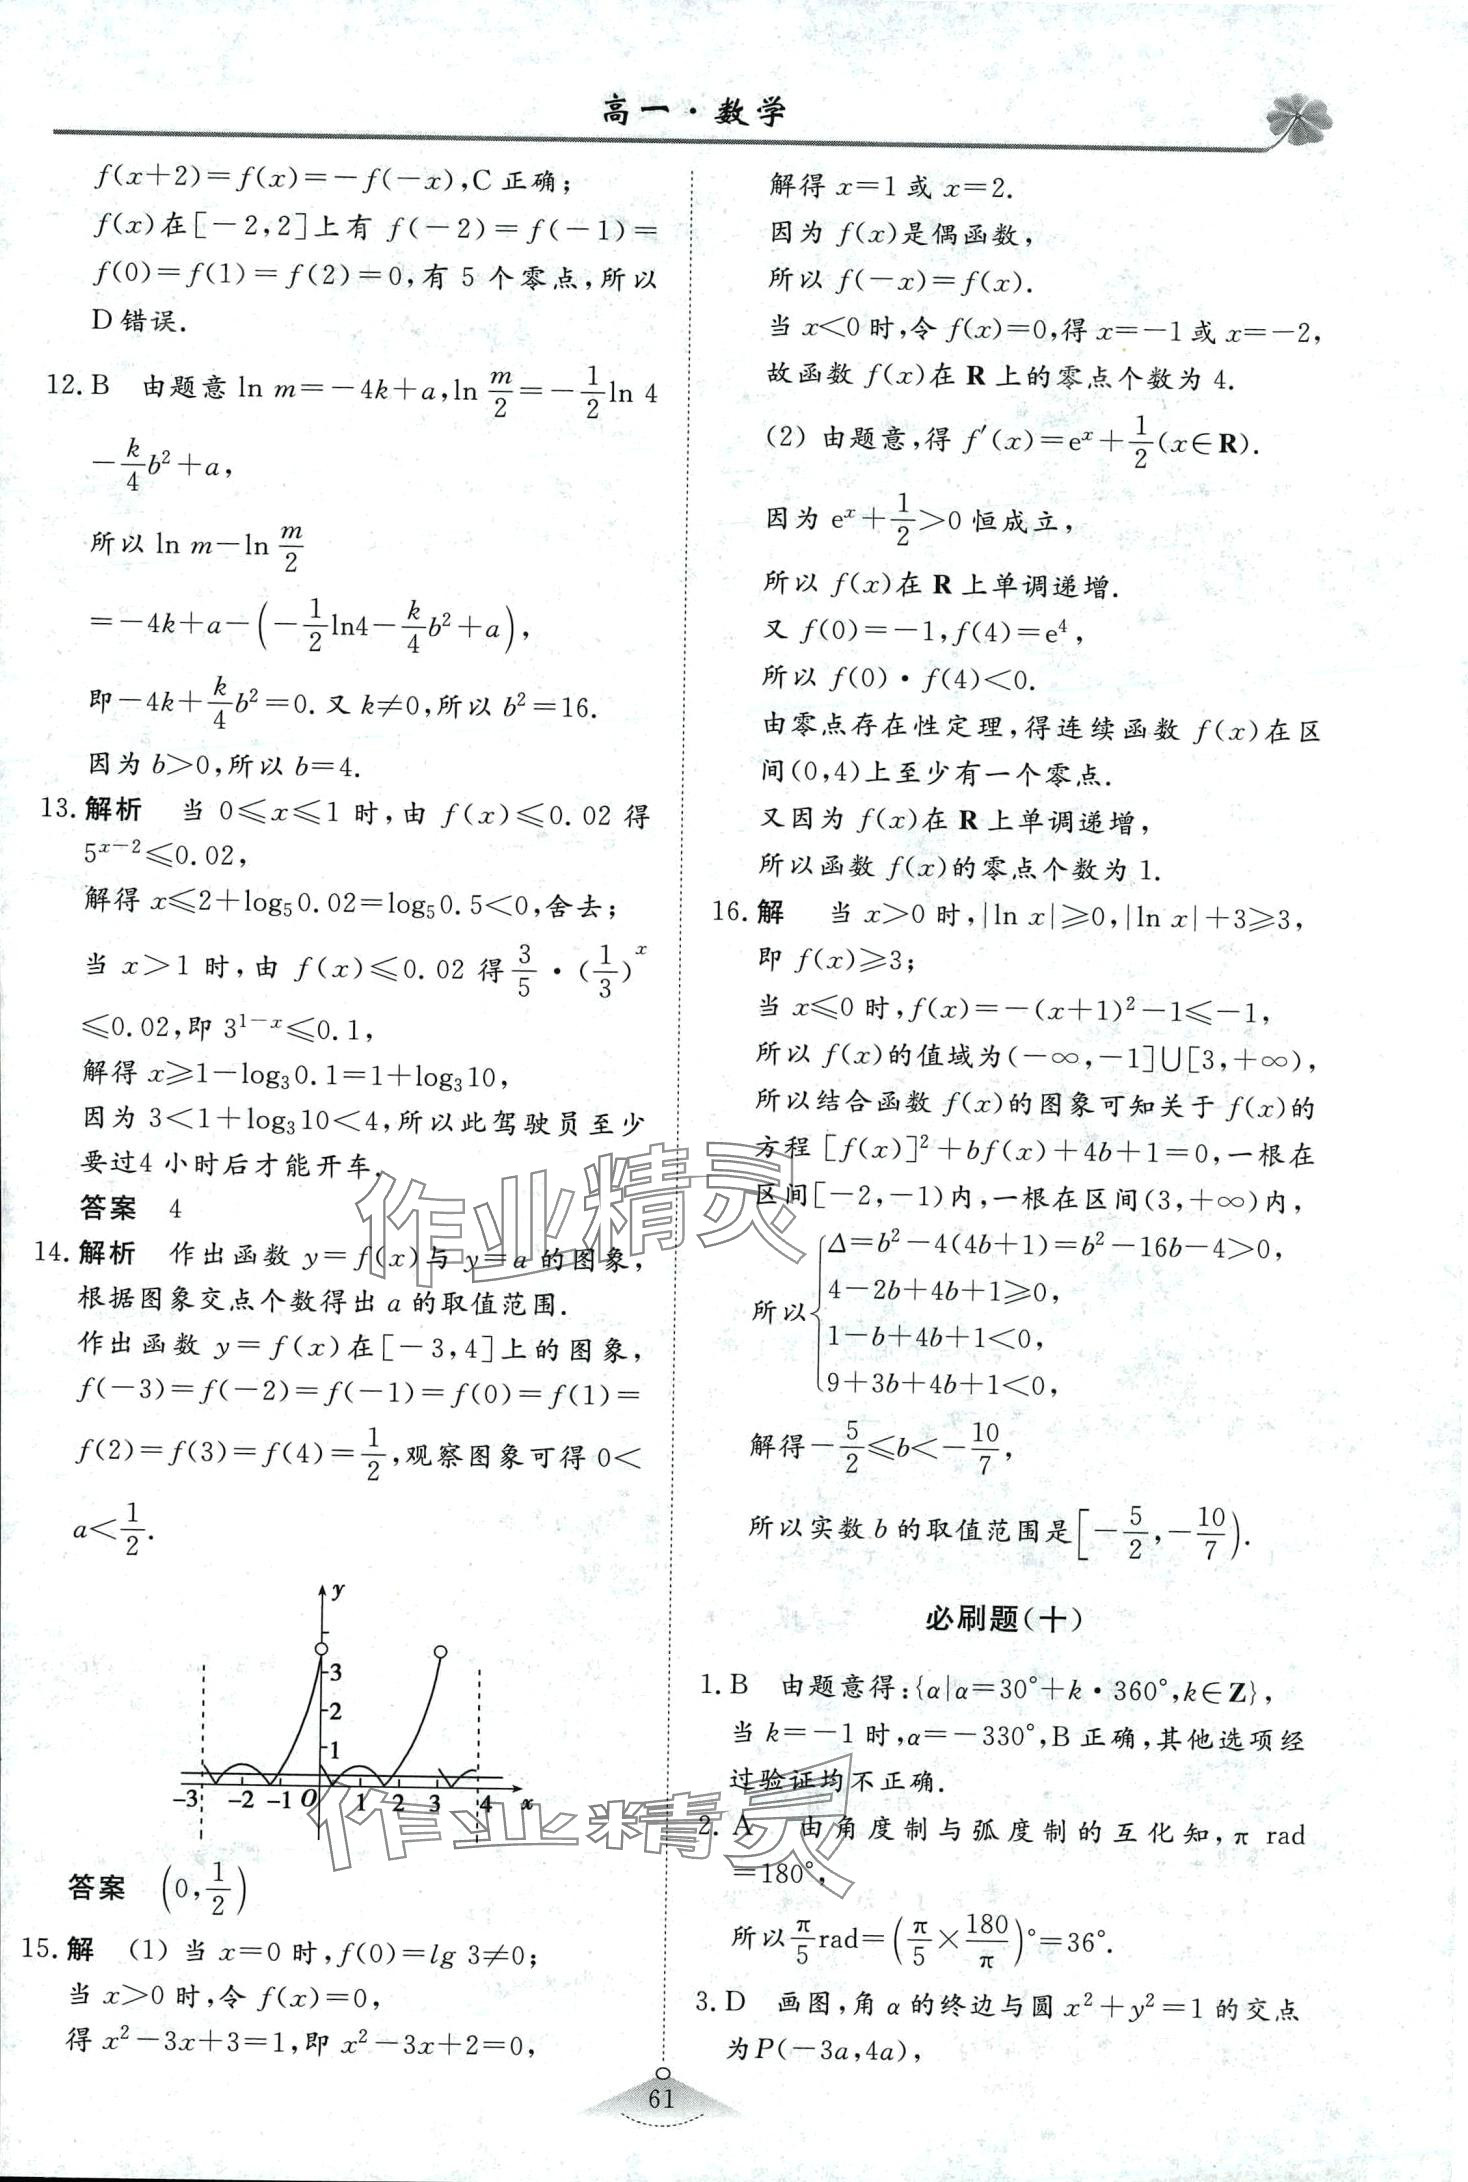 高一·数学
f(x+2)=f(x)=-f(-x),C 正确;
f(x)在[-2,2]上有 f(-2)=f(-1)=
f(0)=f(1)=f(2)=0,有 5 个零点,所以
D 错误.
12.B 由题意 ln m=-4k+a,ln m/2=-1/2 ln 4
-k/4 b²+a,
所以 ln m-ln m/2
=-4k+a-(-1/2 ln4-k/4 b²+a),
即-4k+k/4 b²=0.又 k≠0,所以 b²=16.
因为 b>0,所以 b=4.
13.解析 当 0≤x≤1 时,由 f(x)≤0.02 得
5^(x-2)≤0.02,
解得 x≤2+log₅0.02=log₅0.5<0,舍去;
当 x>1 时,由 f(x)≤0.02 得 3/5·(1/3)^x
≤0.02,即 3^(1-x)≤0.1,
解得 x≥1-log₃0.1=1+log₃10,
因为 3<1+log₃10<4,所以此驾驶员至少
要过4 小时后才能开车.
答案 4
14.解析 作出函数 y=f(x)与 y=a 的图象,
根据图象交点个数得出 a 的取值范围.
作出函数 y=f(x)在[-3,4]上的图象,
f(-3)=f(-2)=f(-1)=f(0)=f(1)=
f(2)=f(3)=f(4)=1/2,观察图象可得 0<
a<1/2.
y
3
2
1
-3 -2 -1 O 1 2 3 4 x
答案 (0,1/2)
15.解 (1)当 x=0 时,f(0)=lg 3≠0;
当 x>0 时,令 f(x)=0,
得 x²-3x+3=1,即 x²-3x+2=0,
解得 x=1 或 x=2.
因为 f(x)是偶函数,
所以 f(-x)=f(x).
当 x<0 时,令 f(x)=0,得 x=-1 或 x=-2,
故函数 f(x)在 R 上的零点个数为 4.
(2)由题意,得 f′(x)=e^x+1/2(x∈R).
因为 e^x+1/2>0 恒成立,
所以 f(x)在 R 上单调递增.
又 f(0)=-1,f(4)=e⁴,
所以 f(0)·f(4)<0.
由零点存在性定理,得连续函数 f(x)在区
间(0,4)上至少有一个零点.
又因为 f(x)在 R 上单调递增,
所以函数 f(x)的零点个数为 1.
16.解 当 x>0 时,|ln x|≥0,|ln x|+3≥3,
即 f(x)≥3;
当 x≤0 时,f(x)=-(x+1)²-1≤-1,
所以 f(x)的值域为(-∞,-1]∪[3,+∞),
所以结合函数 f(x)的图象可知关于 f(x)的
方程[f(x)]²+bf(x)+4b+1=0,一根在
区间[-2,-1)内,一根在区间(3,+∞)内,
所以{Δ=b²-4(4b+1)=b²-16b-4>0,
4-2b+4b+1≥0,
1-b+4b+1<0,
9+3b+4b+1<0,
解得-5/2≤b<-10/7,
所以实数 b 的取值范围是[-5/2,-10/7).
必刷题(十)
1.B 由题意得:{α|α=30°+k·360°,k∈Z},
当 k=-1 时,α=-330°,B 正确,其他选项经
过验证均不正确.
2.A 由角度制与弧度制的互化知,π rad
=180°,
所以 π/5 rad=(π/5×180/π)°=36°.
3.D 画图,角 α 的终边与圆 x²+y²=1 的交点
为P(-3a,4a),
61
作业精灵
作业精灵